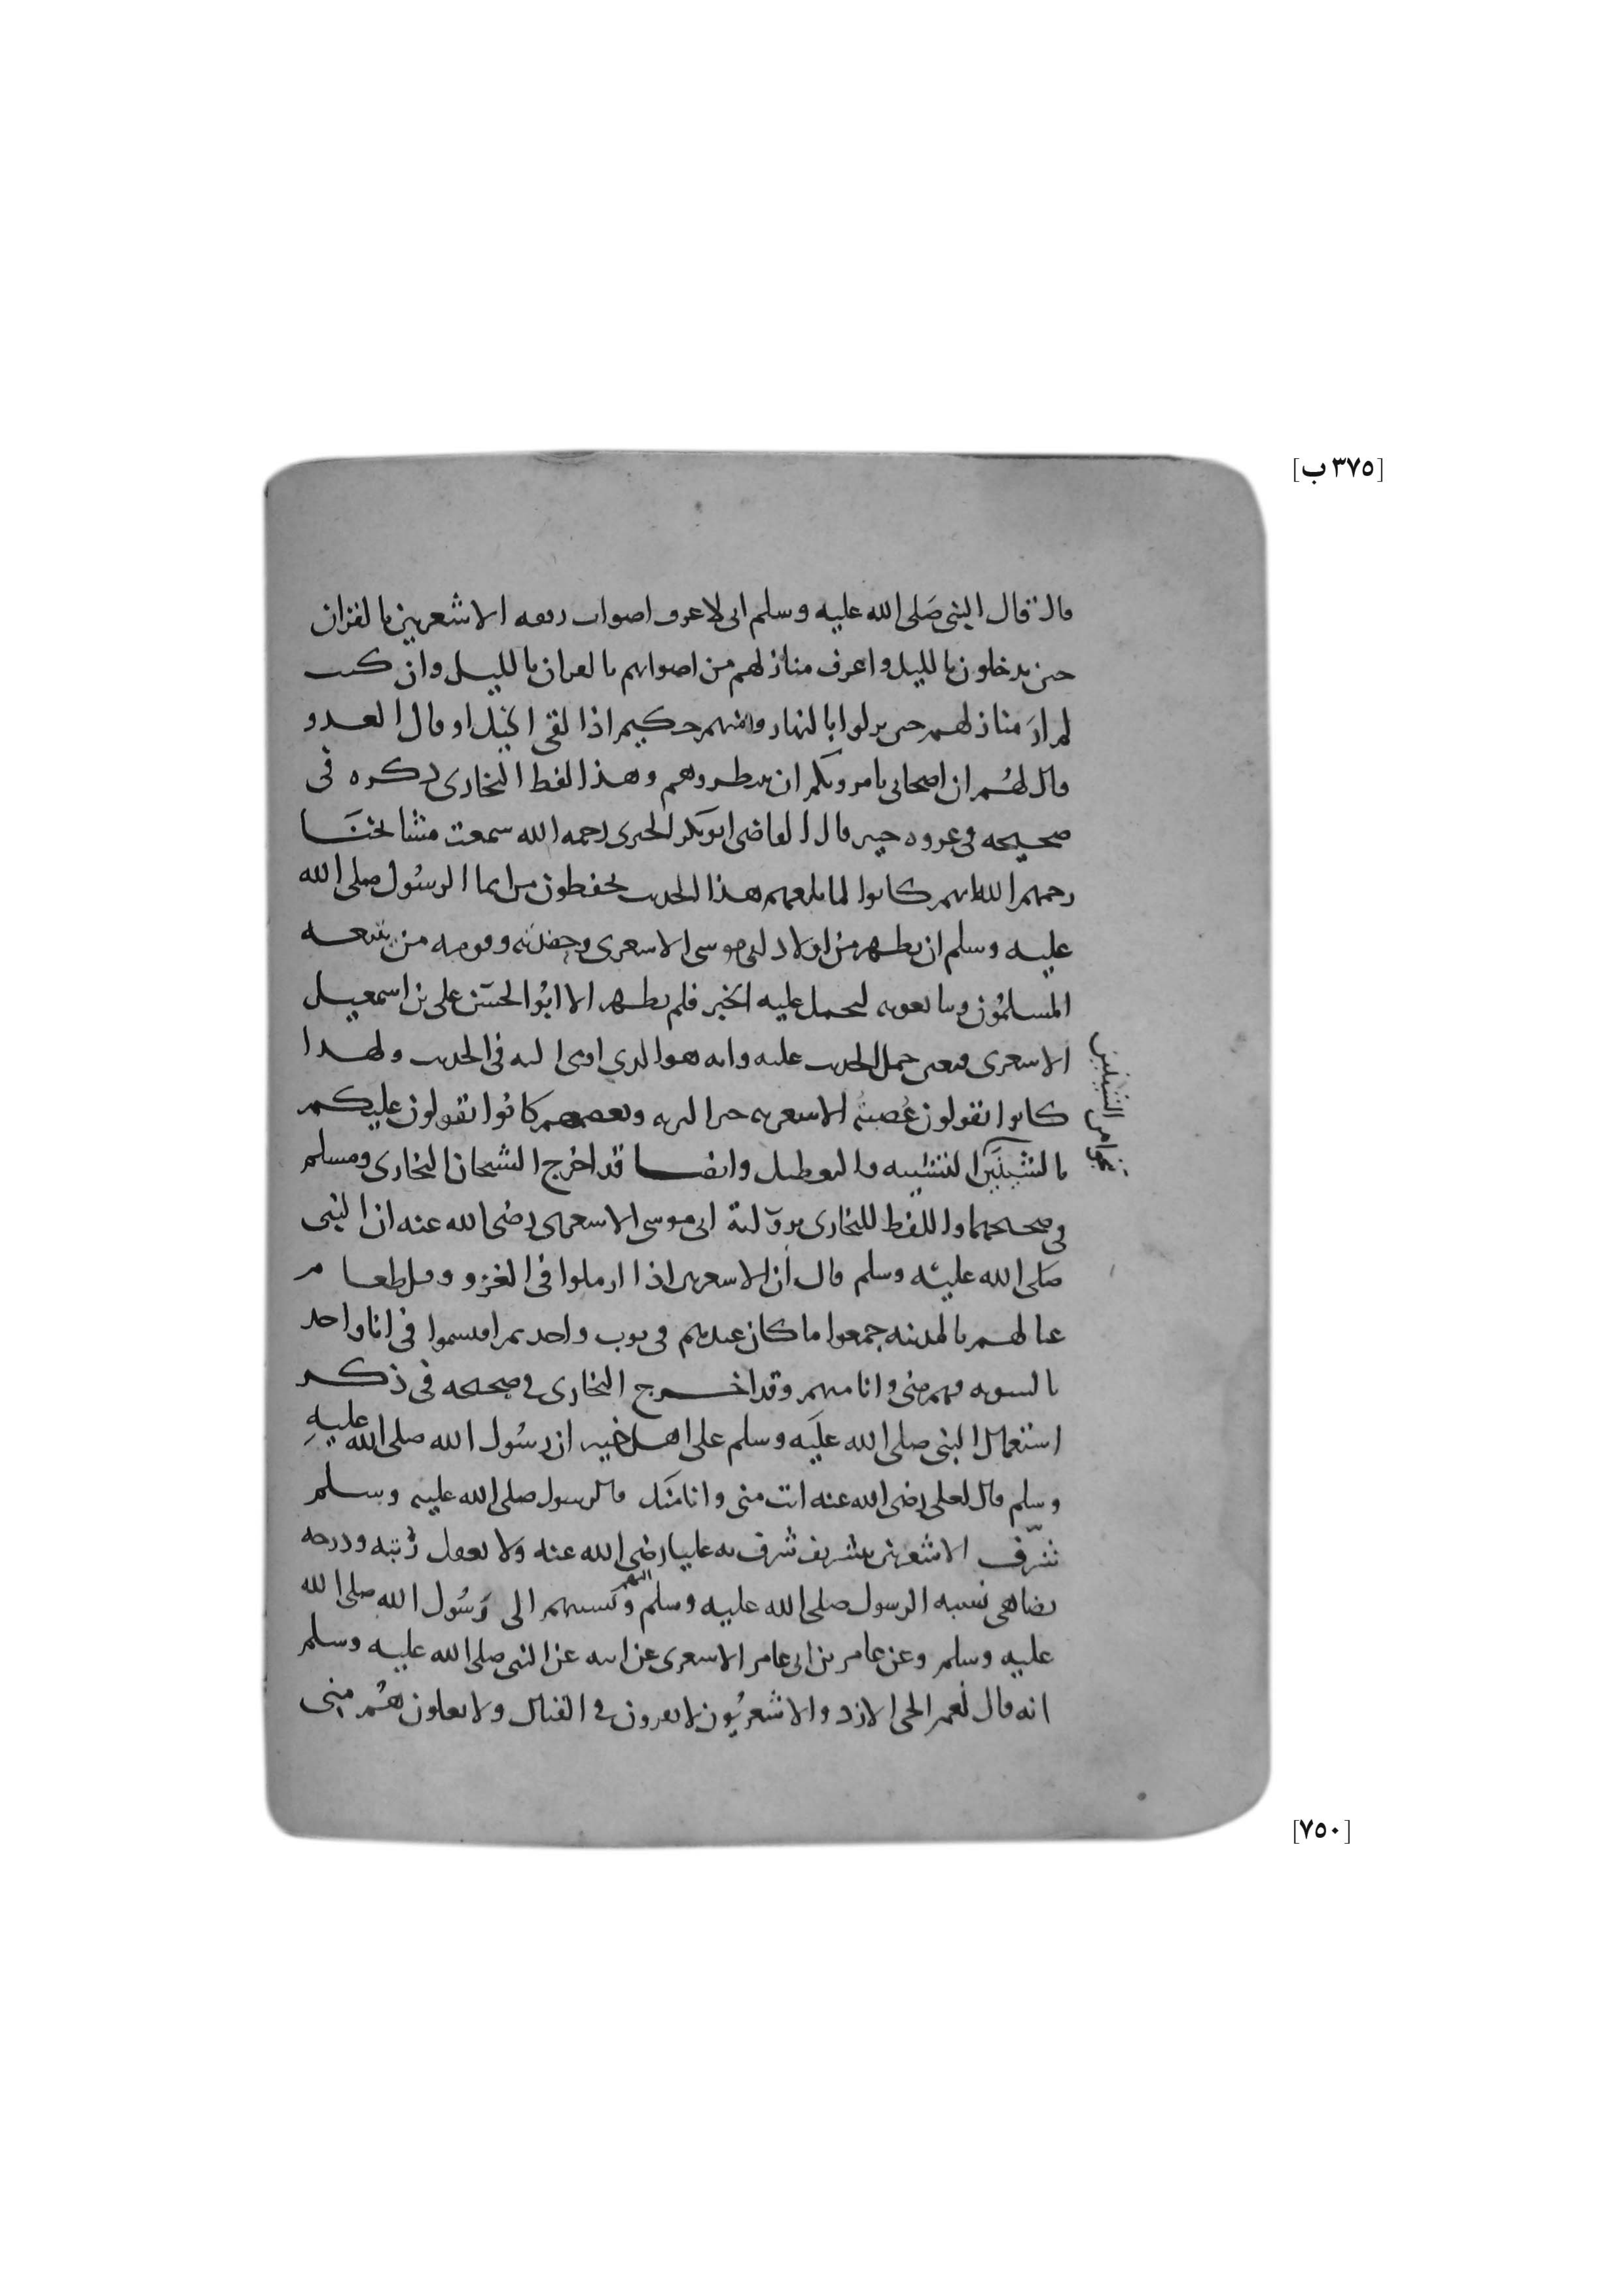 [٣٧٥ ب]
قال قال النبي صلى الله عليه وسلم اني لاعرف اصوات رفقه الاشعريين بالقران
حين يدخلون بالليل واعرف منازلهم من اصواتهم بالقران بالليل وان كنت
لم ار منازلهم حين نزلوا بالنهار ومنهم حكيم اذا لقي الخيل او قال العدو
قال لهم ان اصحابي يامرونكم ان تنظروهم وهذا لفظ البخاري ذكره في
صحيحه في غزوه خيبر قال القاضي ابو بكر الحيري رحمه الله سمعت مشايخنا
رحمهم الله انهم كانوا لما بلغهم هذا الحديث يحفظون من ايما الرسول صلى الله
عليه وسلم ان يظهر من اولاد ابي موسى الاشعري وحفدته وقومه من يتبعه
المسلمون ويبايعونه ليحمل عليه الخبر فلم يظهر الا ابو الحسن علي بن اسمعيل
الاشعري فتعين حمل الحديث عليه وانه هو الذي اومى اليه في الحديث ولهذا
كانوا يقولون عصبة الاشعريه خير البريه وبعضهم كانوا يقولون عليكم
بالشينين التشبيه والتعطيل وايضا قد اخرج الشيخان البخاري ومسلم
في صحيحهما واللفظ للبخاري برواية ابي موسى الاشعري رضي الله عنه ان النبي
صلى الله عليه وسلم قال ان الاشعريين اذا ارملوا في الغزو وقل طعام
عيالهم بالمدينه جمعوا ما كان عندهم في ثوب واحد ثم اقتسموا في انا واحد
بالسويه فهم مني وانا منهم وقد اخرج البخاري في صحيحه في ذكر
استعمال النبي صلى الله عليه وسلم على اهل خيبر ان رسول الله صلى الله عليه
وسلم قال لعلي رضي الله عنه انت مني وانا منك قال رسول صلى الله عليه وسلم
شرف الاشعريين بتشريف شرف به عليا رضي الله عنه ولا يعقل رتبه ودرجه
يضاهي نسبه الرسول صلى الله عليه وسلم اليهم ونسبهم الى رسول الله صلى الله
عليه وسلم وعن عامر بن ابي عامر الاشعري عن ابيه عن النبي صلى الله عليه وسلم
انه قال نعم الحي الازد والاشعريون لا يفرون في القتال ولا يغلون هم مني
[٧٥٠]